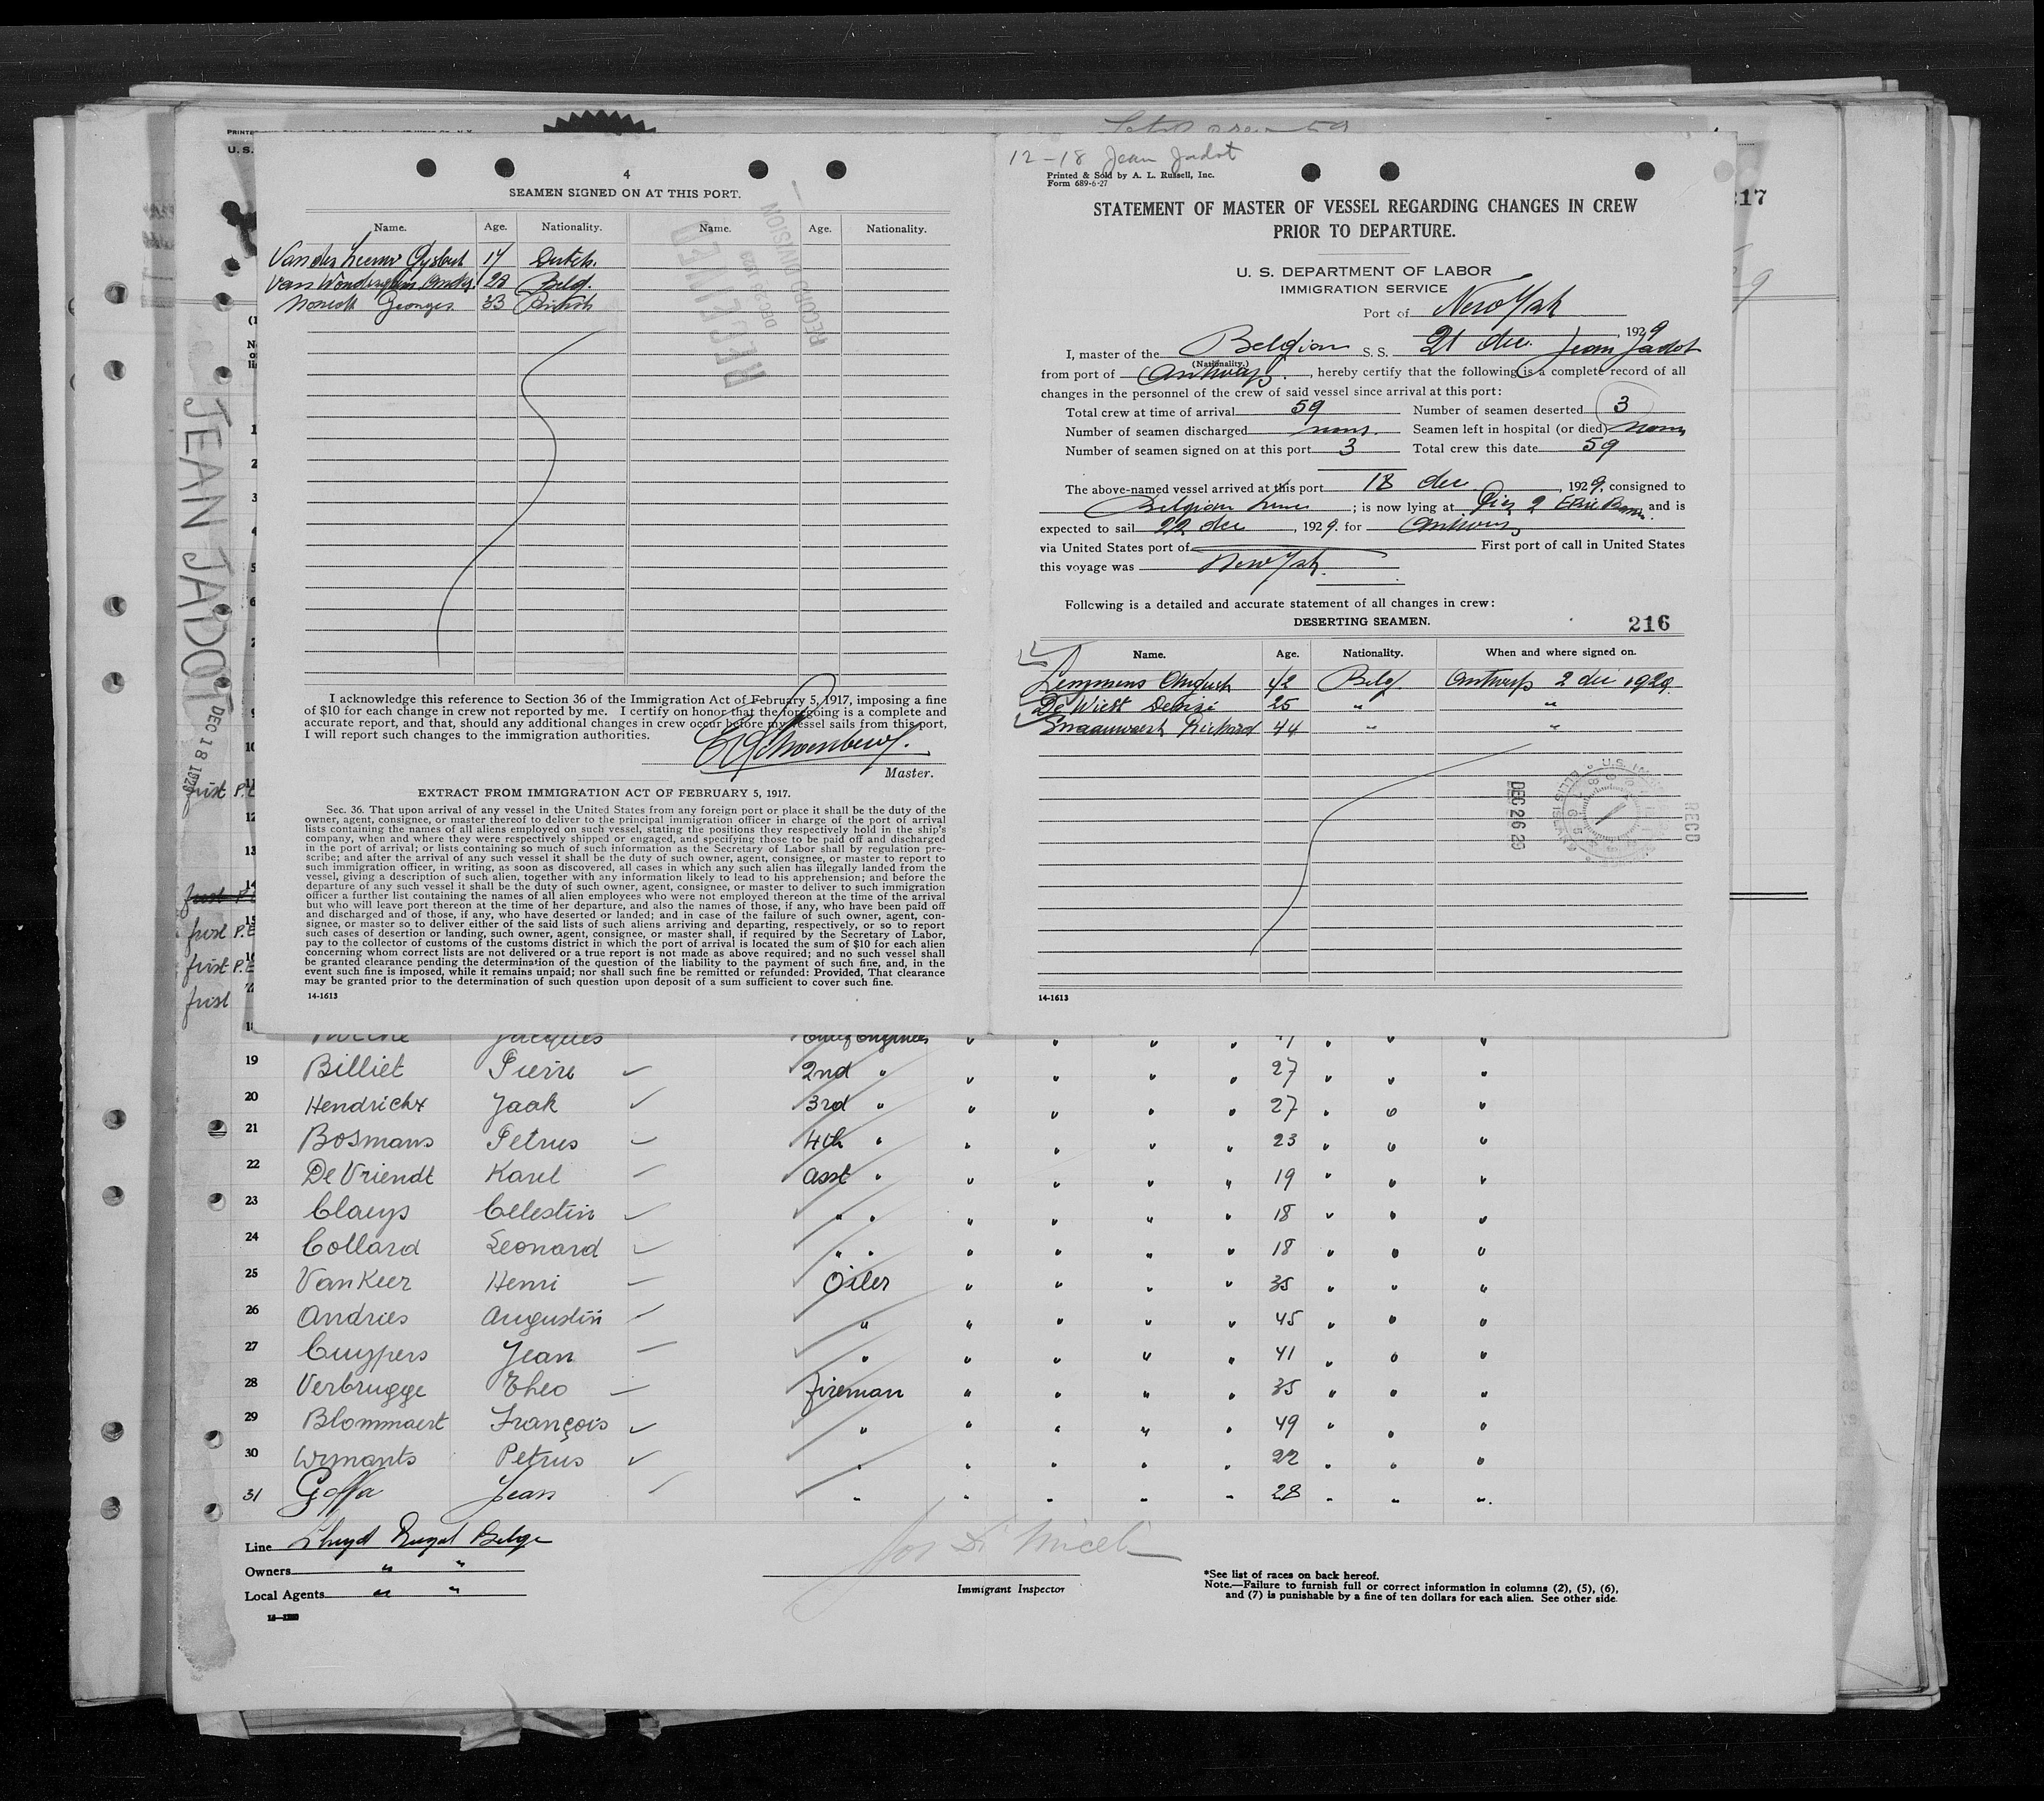 4
SEAMEN SIGNED ON AT THIS PORT.
Name. Age. Nationality. Name. Age. Nationality.
Van der 17 Dutch.
Van 23 Belg.
Georges 33 British
RECEIVED
DEC 26 1929
RECORD DIVISION
I acknowledge this reference to Section 36 of the Immigration Act of February 5, 1917, imposing a fine
of $10 for each change in crew not reported by me. I certify on honor that the foregoing is a complete and
accurate report, and that, should any additional changes in crew occur before my vessel sails from this port,
I will report such changes to the immigration authorities.
Master.
EXTRACT FROM IMMIGRATION ACT OF FEBRUARY 5, 1917.
Sec. 36. That upon arrival of any vessel in the United States from any foreign port or place it shall be the duty of the
owner, agent, consignee, or master thereof to deliver to the principal immigration officer in charge of the port of arrival
lists containing the names of all aliens employed on such vessel, stating the positions they respectively hold in the ship's
company, when and where they were respectively shipped or engaged, and specifying those to be paid off and discharged
in the port of arrival; or lists containing so much of such information as the Secretary of Labor shall by regulation pre-
scribe; and after the arrival of any such vessel it shall be the duty of such owner, agent, consignee, or master to report to
such immigration officer, in writing, as soon as discovered, all cases in which any such alien has illegally landed from the
vessel, giving a description of such alien, together with any information likely to lead to his apprehension; and before the
departure of any such vessel it shall be the duty of such owner, agent, consignee, or master to deliver to such immigration
officer a further list containing the names of all alien employees who were not employed thereon at the time of the arrival
but who will leave port thereon at the time of her departure, and also the names of those, if any, who have been paid off
and discharged and of those, if any, who have deserted or landed; and in case of the failure of such owner, agent, con-
signee, or master so to deliver either of the said lists of such aliens arriving and departing, respectively, or so to report
such cases of desertion or landing, such owner, agent, consignee, or master shall, if required by the Secretary of Labor,
pay to the collector of customs of the customs district in which the port of arrival is located the sum of $10 for each alien
concerning whom correct lists are not delivered or a true report is not made as above required; and no such vessel shall
be granted clearance pending the determination of the question of the liability to the payment of such fine, and, in the
event such fine is imposed, while it remains unpaid; nor shall such fine be remitted or refunded: Provided, That clearance
may be granted prior to the determination of such question upon deposit of a sum sufficient to cover such fine.
14-1613
12-18 Jean Jadot
Printed & Sold by A. L. Russell, Inc.
Form 689-6-27
STATEMENT OF MASTER OF VESSEL REGARDING CHANGES IN CREW
PRIOR TO DEPARTURE.
U. S. DEPARTMENT OF LABOR
IMMIGRATION SERVICE
Port of New York
21 dec. , 1929
I, master of the Belgian S. S. Jean Jadot
(Nationality.)
from port of Antwerp. , hereby certify that the following is a complete record of all
changes in the personnel of the crew of said vessel since arrival at this port:
Total crew at time of arrival 59 Number of seamen deserted 3
Number of seamen discharged none. Seamen left in hospital (or died) none
Number of seamen signed on at this port 3 Total crew this date 59
The above-named vessel arrived at this port 18 dec , 1929, consigned to
Belgian Line ; is now lying at Pier 2 Erie Basin. and is
expected to sail 22 dec , 1929. for Antwerp
via United States port of First port of call in United States
this voyage was New York.
Following is a detailed and accurate statement of all changes in crew:
DESERTING SEAMEN. 216
Name. Age. Nationality. When and where signed on.
Lemmens 42 Belg. Antwerp 2 dec 1929.
De 25 " "
Richard 44 " "
DEC 26 29
RECD
14-1613
217
U. S.
JEAN JADOT
DEC 18 1929
first P.E
first P.E
first P.E
first P.E
first
Jacques Chief Engineer
19 Billiet Pierre 2nd " 27
20 Hendrickx Jaak 3rd " 27
21 Bosmans Petrus 4th " 23
22 De Vriendt Karel asst " 19
23 Claeys Celestin " " 18
24 Collard Leonard " " 18
25 Van Keer Henri Oiler 35
26 Andries Augustin " 45
27 Cuypers Jean " 41
28 Verbrugge Theo Fireman 35
29 Blommaert François " 49
30 Wymants Petrus " 22
31 Goffa Jean " 28
Line Lloyd Royal Belge
Owners " "
Local Agents " "
Immigrant Inspector
*See list of races on back hereof.
Note.—Failure to furnish full or correct information in columns (2), (5), (6),
and (7) is punishable by a fine of ten dollars for each alien. See other side.